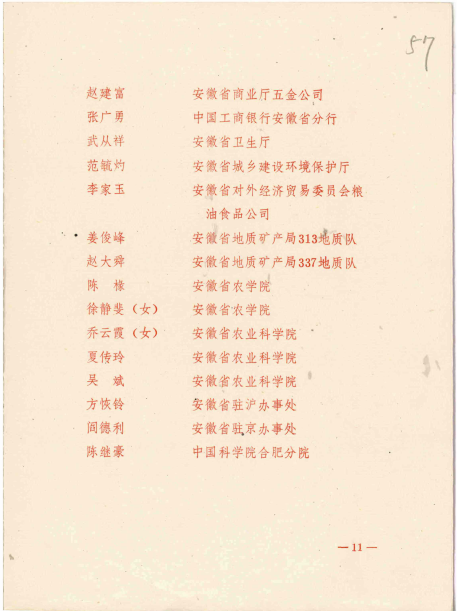 57
赵建富 安徽省商业厅五金公司
张广勇 中国工商银行安徽省分行
武从祥 安徽省卫生厅
范毓灼 安徽省城乡建设环境保护厅
李家玉 安徽省对外经济贸易委员会粮
油食品公司
姜俊峰 安徽省地质矿产局313地质队
赵大舜 安徽省地质矿产局337地质队
陈椽 安徽省农学院
徐静斐（女） 安徽省农学院
乔云霞（女） 安徽省农业科学院
夏传玲 安徽省农业科学院
吴斌 安徽省农业科学院
方恢铃 安徽省驻沪办事处
阎德利 安徽省驻京办事处
陈继豪 中国科学院合肥分院
—11—